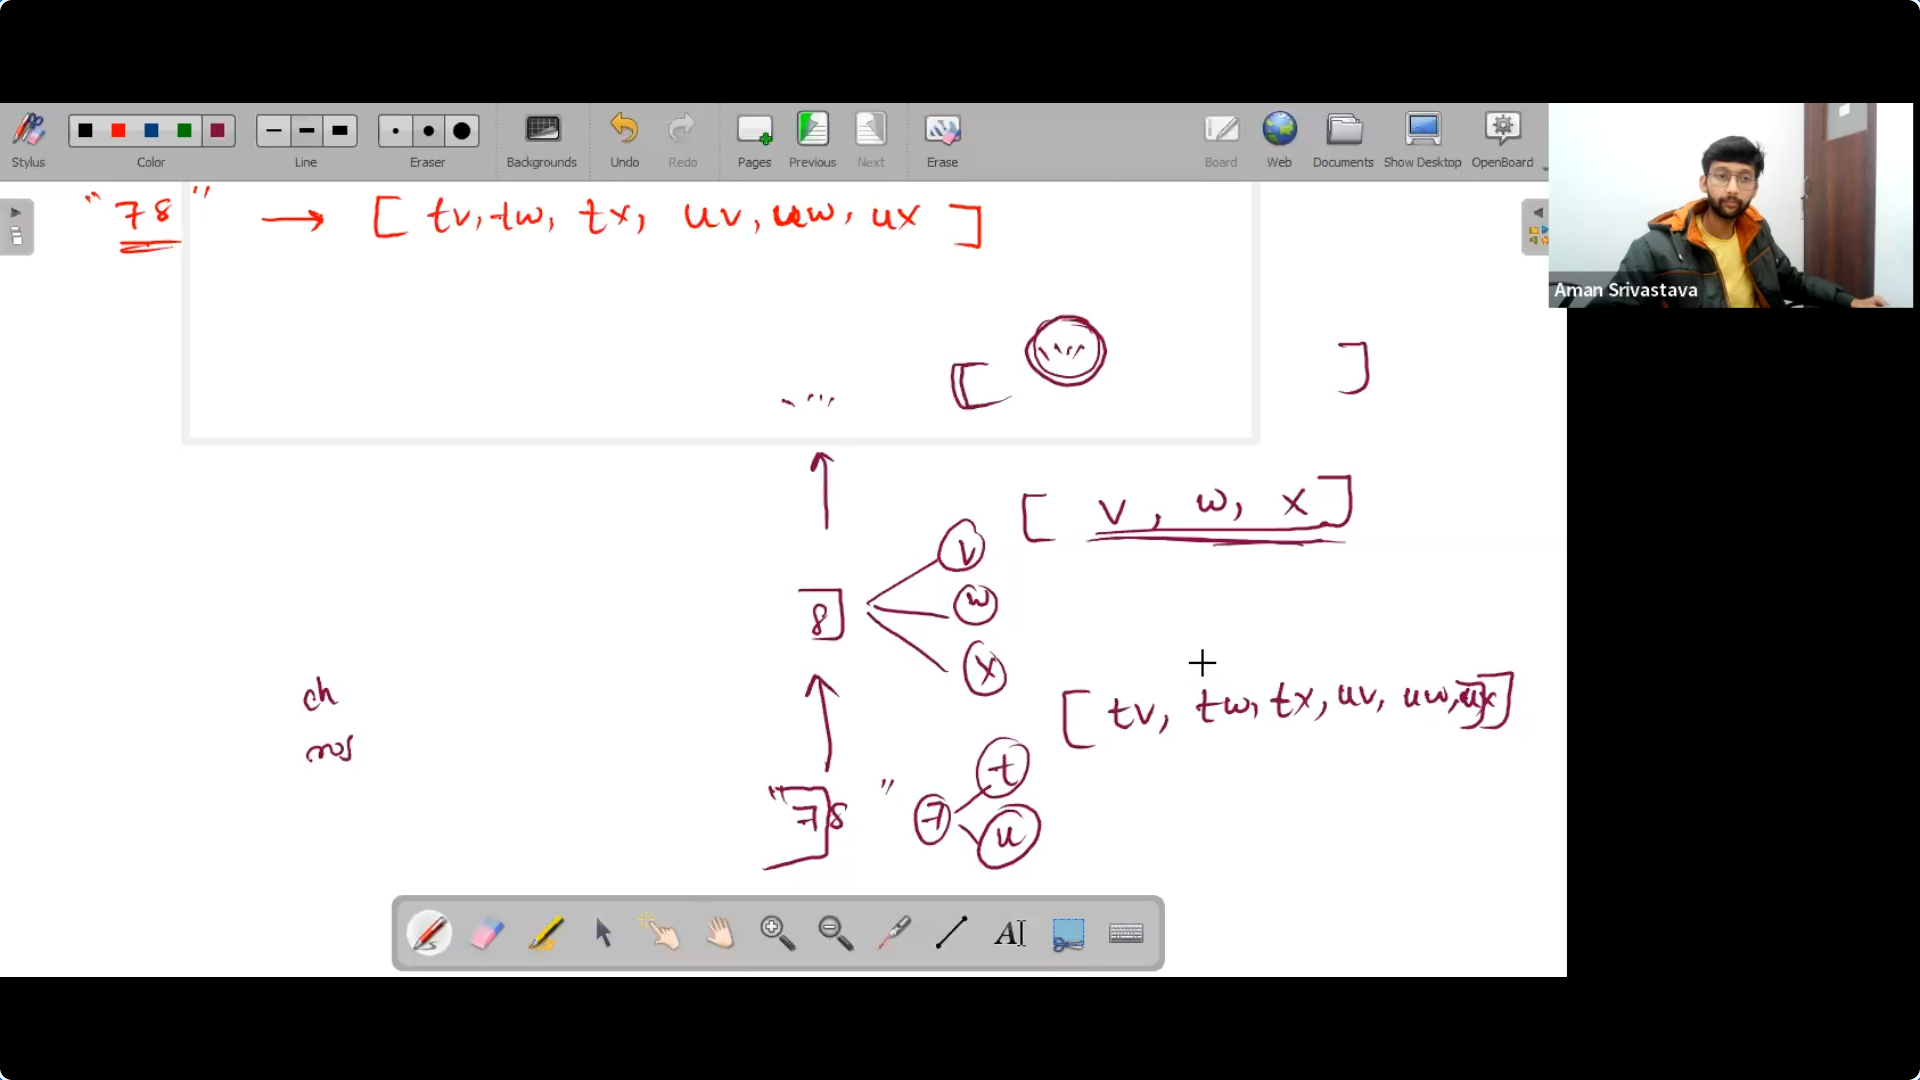 Stylus
Color
Line
Eraser
Backgrounds
Undo
Redo
Pages
Previous
Next
Erase
Board
Web
Documents
Show Desktop
OpenBoard
Aman Srivastava
"78" → [ tv, tw, tx, uv, uw, ux ]
[ "" ]
""
[ v, w, x ]
v
8
w
x
ch
[ tv, tw, tx, uv, uw, ux ]
ros
t
"78" 7
u
AI